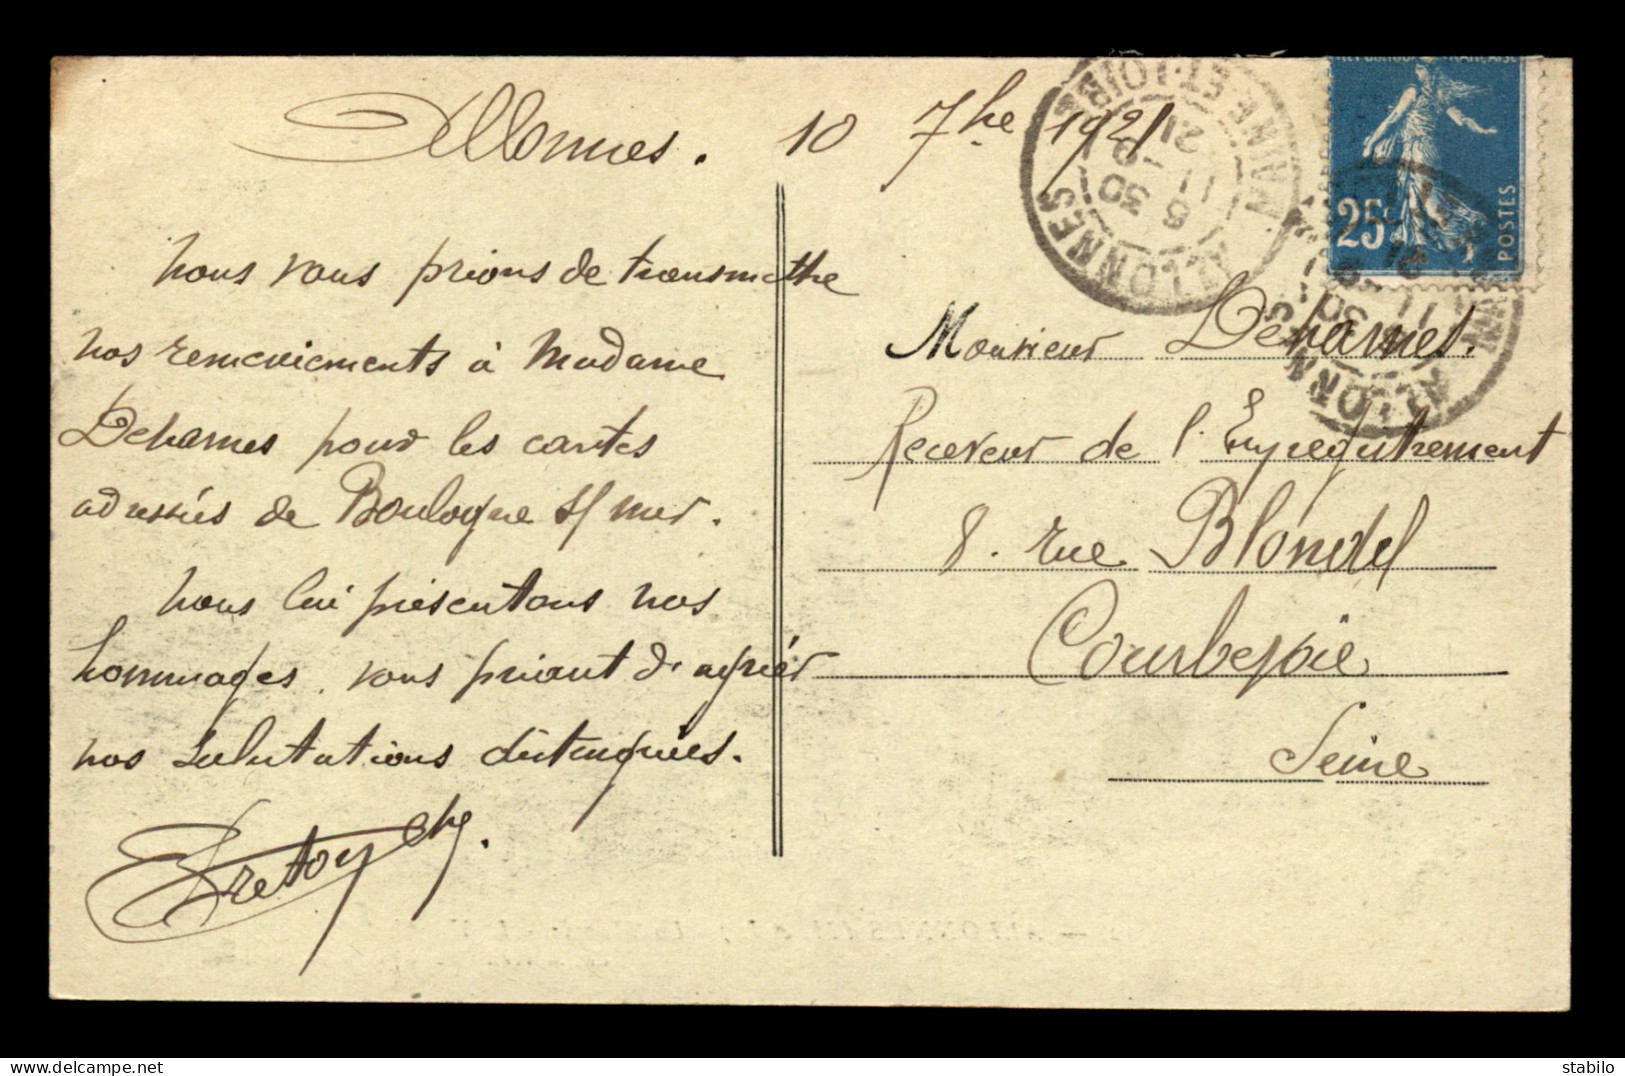 Allonnes. 10 7bre 1921
Nous vous prions de transmettre
nos remerciements à Madame
Deharnes pour les cartes
adressées de Boulogne s/ mer.
Nous lui présentons nos
hommages, vous priant d'agréer
nos salutations distinguées.
Monsieur Deharnes.
Receveur de l'Enregistrement
8. rue Blondel
Courbevoie
Seine
RÉPUBLIQUE FRANÇAISE
25c
POSTES
ALLONNES
MAINE-ET-LOIRE
6 30
11 - 9
21
ALLONNES
30
11 - 9
21
delcampe.net